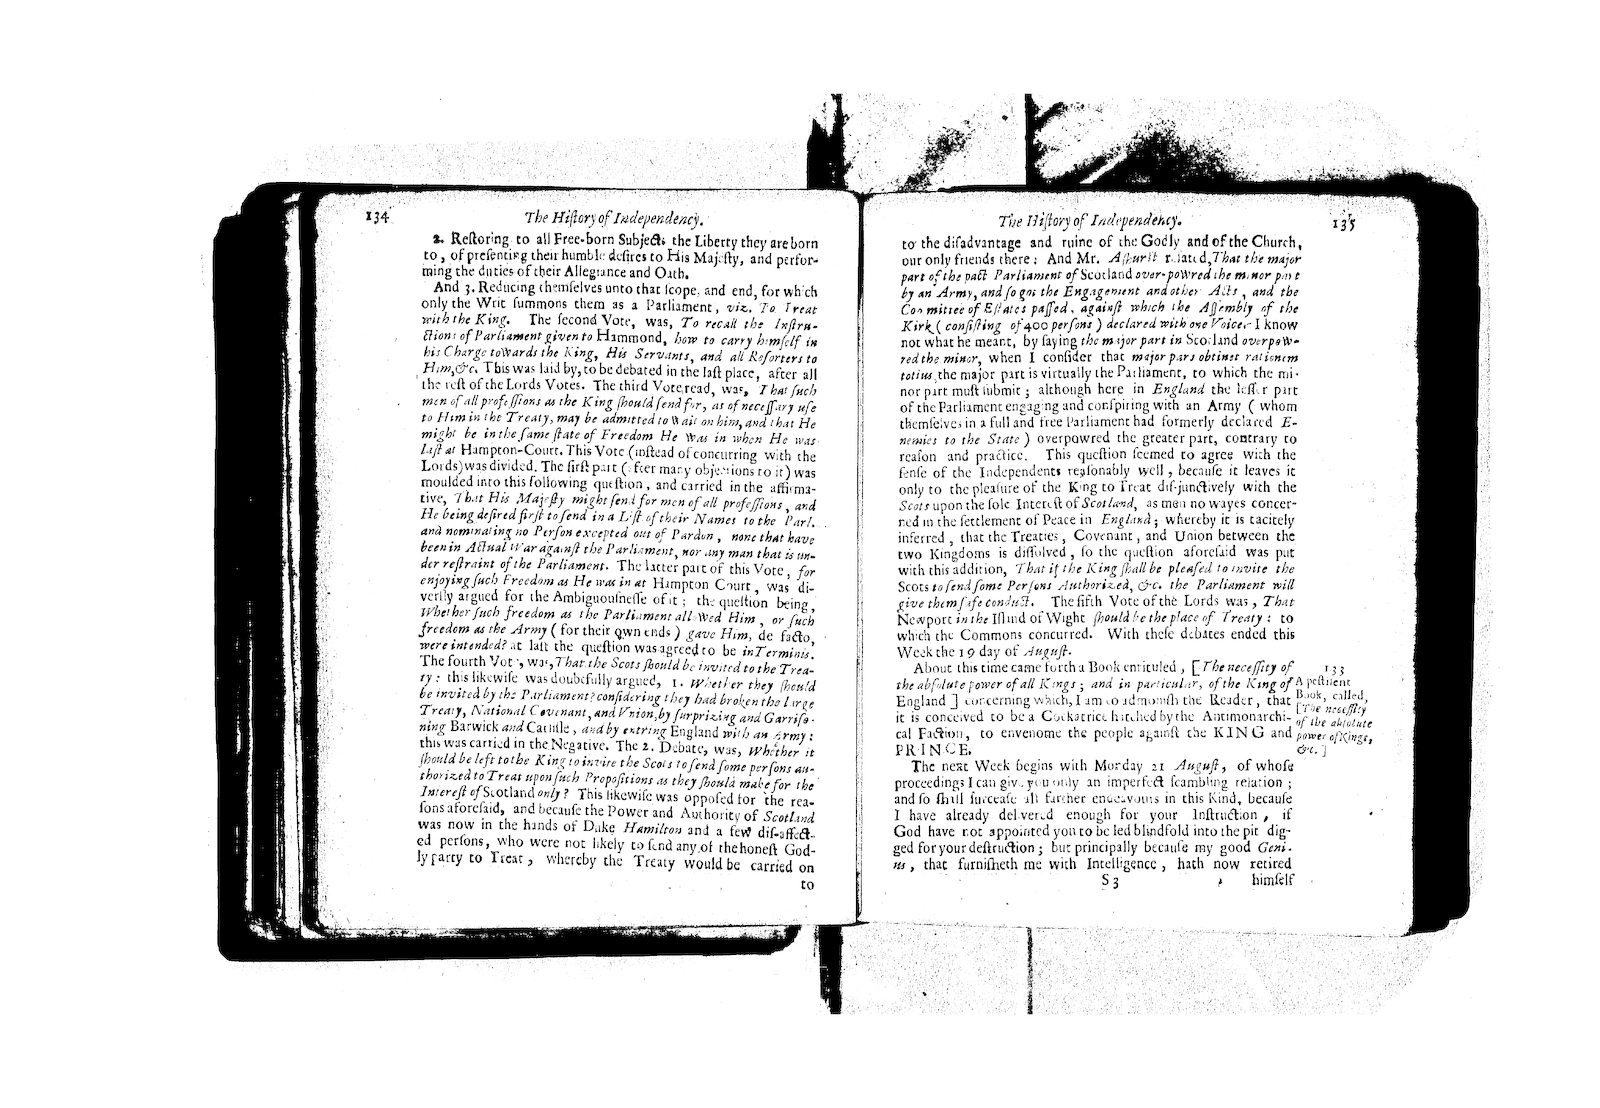 134
The Hiſtory of Independency.
2. Reſtoring to all Free-born Subjects the Liberty they are born
to, of preſenting their humble deſires to His Majeſty, and perfor-
ming the duties of their Allegiance and Oath.
And 3. Reducing themſelves unto that ſcope, and end, for which
only the Writ ſummons them as a Parliament, viz. To Treat
with the King. The ſecond Vote, was, To recall the Inſtru-
ctions of Parliament given to Hammond, how to carry himſelf in
his Charge towards the King, His Servants, and all Reſorters to
Him, &c. This was laid by, to be debated in the laſt place, after all
the reſt of the Lords Votes. The third Vote read, was, That ſuch
men of all profeſſions as the King ſhould ſend for, as of neceſſary uſe
to Him in the Treaty, may be admitted to wait on him, and that He
might be in the ſame ſtate of Freedom He was in when He was
laſt at Hampton-Court. This Vote (inſtead of concurring with the
Lords) was divided. The firſt part (after many objections to it) was
moulded into this following queſtion, and carried in the affirma-
tive, That His Majeſty might ſend for men of all profeſſions, and
He being deſired firſt to ſend in a Liſt of their Names to the Parl.
and nominating no Perſon excepted out of Pardon, none that have
been in Actual War againſt the Parliament, nor any man that is un-
der reſtraint of the Parliament. The latter part of this Vote, for
enjoying ſuch Freedom as He was in at Hampton Court, was di-
verſly argued for the Ambiguouſneſſe of it; the queſtion being,
Whether ſuch freedom as the Parliament allowed Him, or ſuch
freedom as the Army (for their own ends) gave Him, de facto,
were intended? at laſt the queſtion was agreed to be in Terminis.
The fourth Vote, was, That the Scots ſhould be invited to the Trea-
ty: this likewiſe was doubtfully argued, 1. Whether they ſhould
be invited by the Parliament? conſidering they had broken the large
Treaty, National Covenant, and Union, by ſurprizing and Garriſo-
ning Barwick and Carliſle, and by entring England with an Army:
this was carried in the Negative. The 2. Debate, was, Whether it
ſhould be left to the King to invite the Scots to ſend ſome perſons au-
thorized to Treat upon ſuch Propoſitions as they ſhould make for the
Intereſt of Scotland only? This likewiſe was oppoſed for the rea-
ſons aforeſaid, and becauſe the Power and Authority of Scotland
was now in the hands of Duke Hamilton and a few diſ-affect-
ed perſons, who were not likely to ſend any of the honeſt God-
ly party to Treat, whereby the Treaty would be carried on
to
The Hiſtory of Independency.
135
to the diſadvantage and ruine of the Godly and of the Church,
our only friends there: And Mr. Aſhurſt related, That the major
part of the paſt Parliament of Scotland over-powred the minor part
by an Army, and ſo got the Engagement and other Acts, and the
Committee of Eſtates paſſed, againſt which the Aſſembly of the
Kirk (conſiſting of 400 perſons) declared with one Voice. I know
not what he meant, by ſaying the major part in Scotland overpow-
red the minor, when I conſider that major pars obtinet rationem
totius, the major part is virtually the Parliament, to which the mi-
nor part muſt ſubmit; although here in England the leſſer part
of the Parliament engaging and conſpiring with an Army (whom
themſelves in a full and free Parliament had formerly declared E-
nemies to the State) overpowred the greater part, contrary to
reaſon and practice. This queſtion ſeemed to agree with the
ſenſe of the Independents reaſonably well, becauſe it leaves it
only to the pleaſure of the King to Treat diſ-junctively with the
Scots upon the ſole Intereſt of Scotland, as men no wayes concer-
ned in the ſettlement of Peace in England; whereby it is tacitely
inferred, that the Treaties, Covenant, and Union between the
two Kingdoms is diſſolved, ſo the queſtion aforeſaid was put
with this addition, That if the King ſhall be pleaſed to invite the
Scots to ſend ſome Perſons Authorized, &c. the Parliament will
give them ſafe conduct. The fifth Vote of the Lords was, That
Newport in the Iſland of Wight ſhould be the place of Treaty: to
which the Commons concurred. With theſe debates ended this
Week the 19 day of Auguſt.
About this time came forth a Book entituled, [The neceſſity of
the abſolute power of all Kings; and in particular, of the King of
England] concerning which, I am to admoniſh the Reader, that
it is conceived to be a Cockatrice hatched by the Antimonarchi-
cal Faction, to envenome the people againſt the KING and
PRINCE.
133
A peſtilent
Book, called,
[The neceſſity
of the abſolute
power of Kings,
&c.]
The next Week begins with Monday 21 Auguſt, of whoſe
proceedings I can give you only an imperfect ſcambling relation;
and ſo ſhall ſurceaſe all farther endeavours in this Kind, becauſe
I have already delivered enough for your Inſtruction, if
God have not appointed you to be led blindfold into the pit dig-
ged for your deſtruction; but principally becauſe my good Geni-
us, that furniſheth me with Intelligence, hath now retired
S 3
himſelf